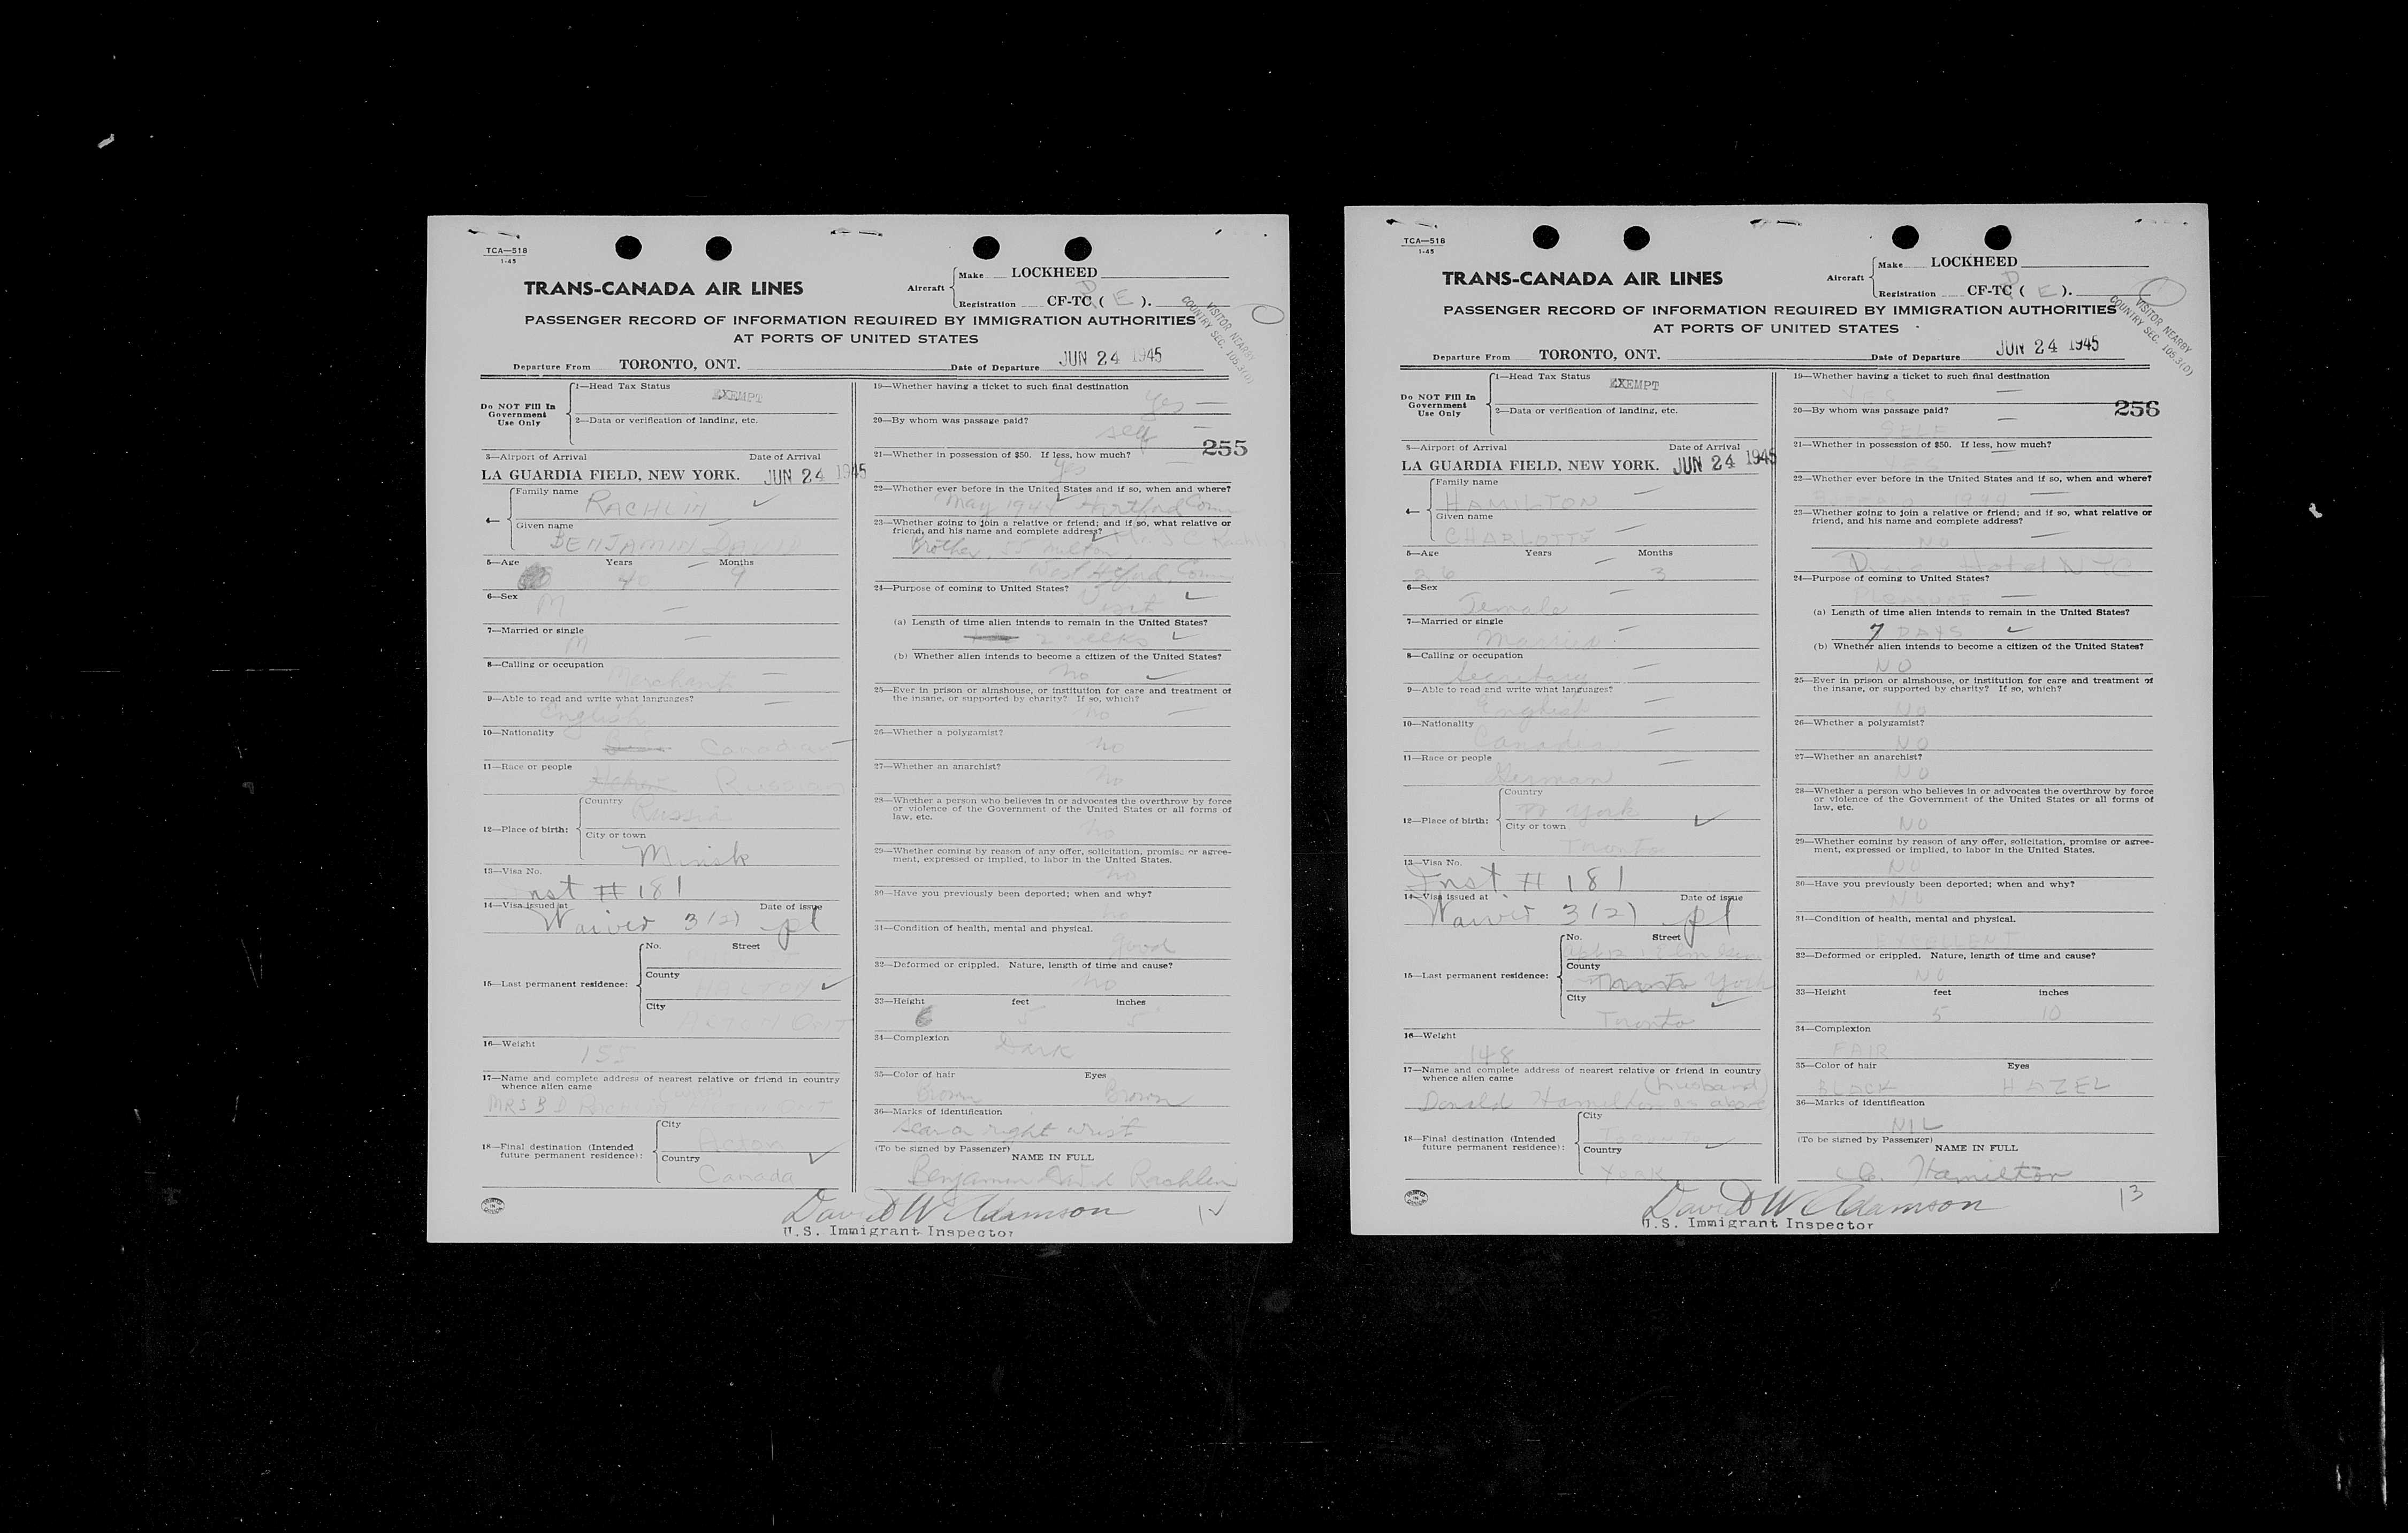 TCA—518
1-45
TRANS-CANADA AIR LINES
Aircraft
Make LOCKHEED
Registration CF-TC ( E ).
PASSENGER RECORD OF INFORMATION REQUIRED BY IMMIGRATION AUTHORITIES
AT PORTS OF UNITED STATES
VISITOR NEARBY
COUNTRY SEC. 165.3(D)
Departure From TORONTO, ONT. Date of Departure JUN 24 1945
Do NOT Fill In
Government
Use Only
1—Head Tax Status EXEMPT
2—Data or verification of landing, etc.
3—Airport of Arrival Date of Arrival
LA GUARDIA FIELD, NEW YORK. JUN 24 1945
4—
Family name
RACHLIN
Given name
BENJAMIN DAVID
5—Age Years Months
40 9
6—Sex
M
7—Married or single
M
8—Calling or occupation
Merchant
9—Able to read and write what languages?
English
10—Nationality
Canadian
11—Race or people
Hebrew Russian
12—Place of birth:
Country
Russia
City or town
Minsk
13—Visa No.
Inst # 181
14—Visa issued at Date of issue
Waiver 3(2) pl
15—Last permanent residence:
No. Street
County
HALTON
City
ACTON ONT
16—Weight
155
17—Name and complete address of nearest relative or friend in country
whence alien came
MRS B D Rachlin ONT
18—Final destination (Intended
future permanent residence):
City
Acton
Country
Canada
19—Whether having a ticket to such final destination
Yes
20—By whom was passage paid?
self
255
21—Whether in possession of $50. If less, how much?
Yes
22—Whether ever before in the United States and if so, when and where?
May 1944 Hartford Conn
23—Whether going to join a relative or friend; and if so, what relative or
friend, and his name and complete address?
Brother, 55 Milton
West Htford, Conn
24—Purpose of coming to United States?
Visit
(a) Length of time alien intends to remain in the United States?
2 weeks
(b) Whether alien intends to become a citizen of the United States?
No
25—Ever in prison or almshouse, or institution for care and treatment of
the insane, or supported by charity? If so, which?
No
26—Whether a polygamist?
No
27—Whether an anarchist?
No
28—Whether a person who believes in or advocates the overthrow by force
or violence of the Government of the United States or all forms of
law, etc.
No
29—Whether coming by reason of any offer, solicitation, promise or agree-
ment, expressed or implied, to labor in the United States.
No
30—Have you previously been deported; when and why?
No
31—Condition of health, mental and physical.
Good
32—Deformed or crippled. Nature, length of time and cause?
No
33—Height feet inches
5 5
34—Complexion
Dark
35—Color of hair Eyes
Brown Brown
36—Marks of identification
scar on right wrist
(To be signed by Passenger)
NAME IN FULL
Benjamin David Rachlin
David W Adamson
U.S. Immigrant Inspector
TCA—518
1-45
TRANS-CANADA AIR LINES
Aircraft
Make LOCKHEED
Registration CF-TC ( E ).
PASSENGER RECORD OF INFORMATION REQUIRED BY IMMIGRATION AUTHORITIES
AT PORTS OF UNITED STATES
VISITOR NEARBY
COUNTRY SEC. 165.3(D)
Departure From TORONTO, ONT. Date of Departure JUN 24 1945
Do NOT Fill In
Government
Use Only
1—Head Tax Status EXEMPT
2—Data or verification of landing, etc.
3—Airport of Arrival Date of Arrival
LA GUARDIA FIELD, NEW YORK. JUN 24 1945
4—
Family name
HAMILTON
Given name
CHARLOTTE
5—Age Years Months
26 3
6—Sex
Female
7—Married or single
Married
8—Calling or occupation
Secretary
9—Able to read and write what languages?
English
10—Nationality
Canadian
11—Race or people
German
12—Place of birth:
Country
York
City or town
Toronto
13—Visa No.
Inst. # 181
14—Visa issued at Date of issue
Waiver 3(2) pl
15—Last permanent residence:
No. Street
County
Toronto York
City
Toronto
16—Weight
148
17—Name and complete address of nearest relative or friend in country
whence alien came (husband)
Donald Hamilton as above
18—Final destination (Intended
future permanent residence):
City
Toronto
Country
YORK
19—Whether having a ticket to such final destination
YES
20—By whom was passage paid?
SELF
256
21—Whether in possession of $50. If less, how much?
YES
22—Whether ever before in the United States and if so, when and where?
BUFFALO 1944
23—Whether going to join a relative or friend; and if so, what relative or
friend, and his name and complete address?
NO
Dixie Hotel NYC
24—Purpose of coming to United States?
PLEASURE
(a) Length of time alien intends to remain in the United States?
7 DAYS
(b) Whether alien intends to become a citizen of the United States?
NO
25—Ever in prison or almshouse, or institution for care and treatment of
the insane, or supported by charity? If so, which?
NO
26—Whether a polygamist?
NO
27—Whether an anarchist?
NO
28—Whether a person who believes in or advocates the overthrow by force
or violence of the Government of the United States or all forms of
law, etc.
NO
29—Whether coming by reason of any offer, solicitation, promise or agree-
ment, expressed or implied, to labor in the United States.
NO
30—Have you previously been deported; when and why?
NO
31—Condition of health, mental and physical.
EXCELLENT
32—Deformed or crippled. Nature, length of time and cause?
NO
33—Height feet inches
5 10
34—Complexion
FAIR
35—Color of hair Eyes
BLACK HAZEL
36—Marks of identification
NIL
(To be signed by Passenger)
NAME IN FULL
C. Hamilton
David W Adamson
13
U.S. Immigrant Inspector